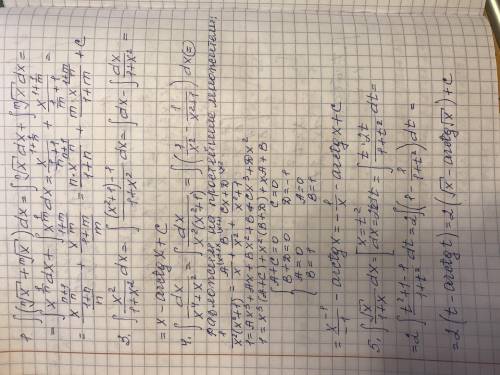 1. ∫(ⁿ√x + ᵐ√x)dx = ∫ⁿ√x dx + ∫ᵐ√x dx =
= ∫x^(1/n) dx + ∫x^(1/m) dx = x^(1/n+1)/(1/n+1) + x^(1/m+1)/(1/m+1) =
= x^((n+1)/n)/((1+n)/n) + x^((1+m)/m)/((1+m)/m) = n·x^((n+1)/n)/(1+n) + m·x^((1+m)/m)/(1+m) + C
3. ∫x²/(1+x²) dx = ∫((x²+1)-1)/(1+x²) dx = ∫dx - ∫dx/(1+x²) =
= x - arctg x + C
4. ∫dx/(x⁴+x²) = ∫dx/(x²(x²+1)) = ∫(1/x² - 1/(x²+1)) dx (=)
разложение на простейшие множители:
1/(x²(x²+1)) = A/x + B/x² + (Cx+D)/(x²+1)
1 = Ax³+Ax+Bx²+B+Cx³+Dx²
1 = x³(A+C)+x²(B+D)+xA+B
A+C=0 C=0
B+D=0 D=-1
A=0 A=0
B=1 B=1
= x⁻¹/-1 - arctg x = -1/x - arctg x + C
5. ∫√x/(1+x) dx = [x=t² dx=2t dt] = ∫t·2t/(1+t²) dt =
= 2∫(t²+1-1)/(1+t²) dt = 2∫(1 - 1/(1+t²)) dt =
= 2(t - arctg t) = 2(√x - arctg √x) + C